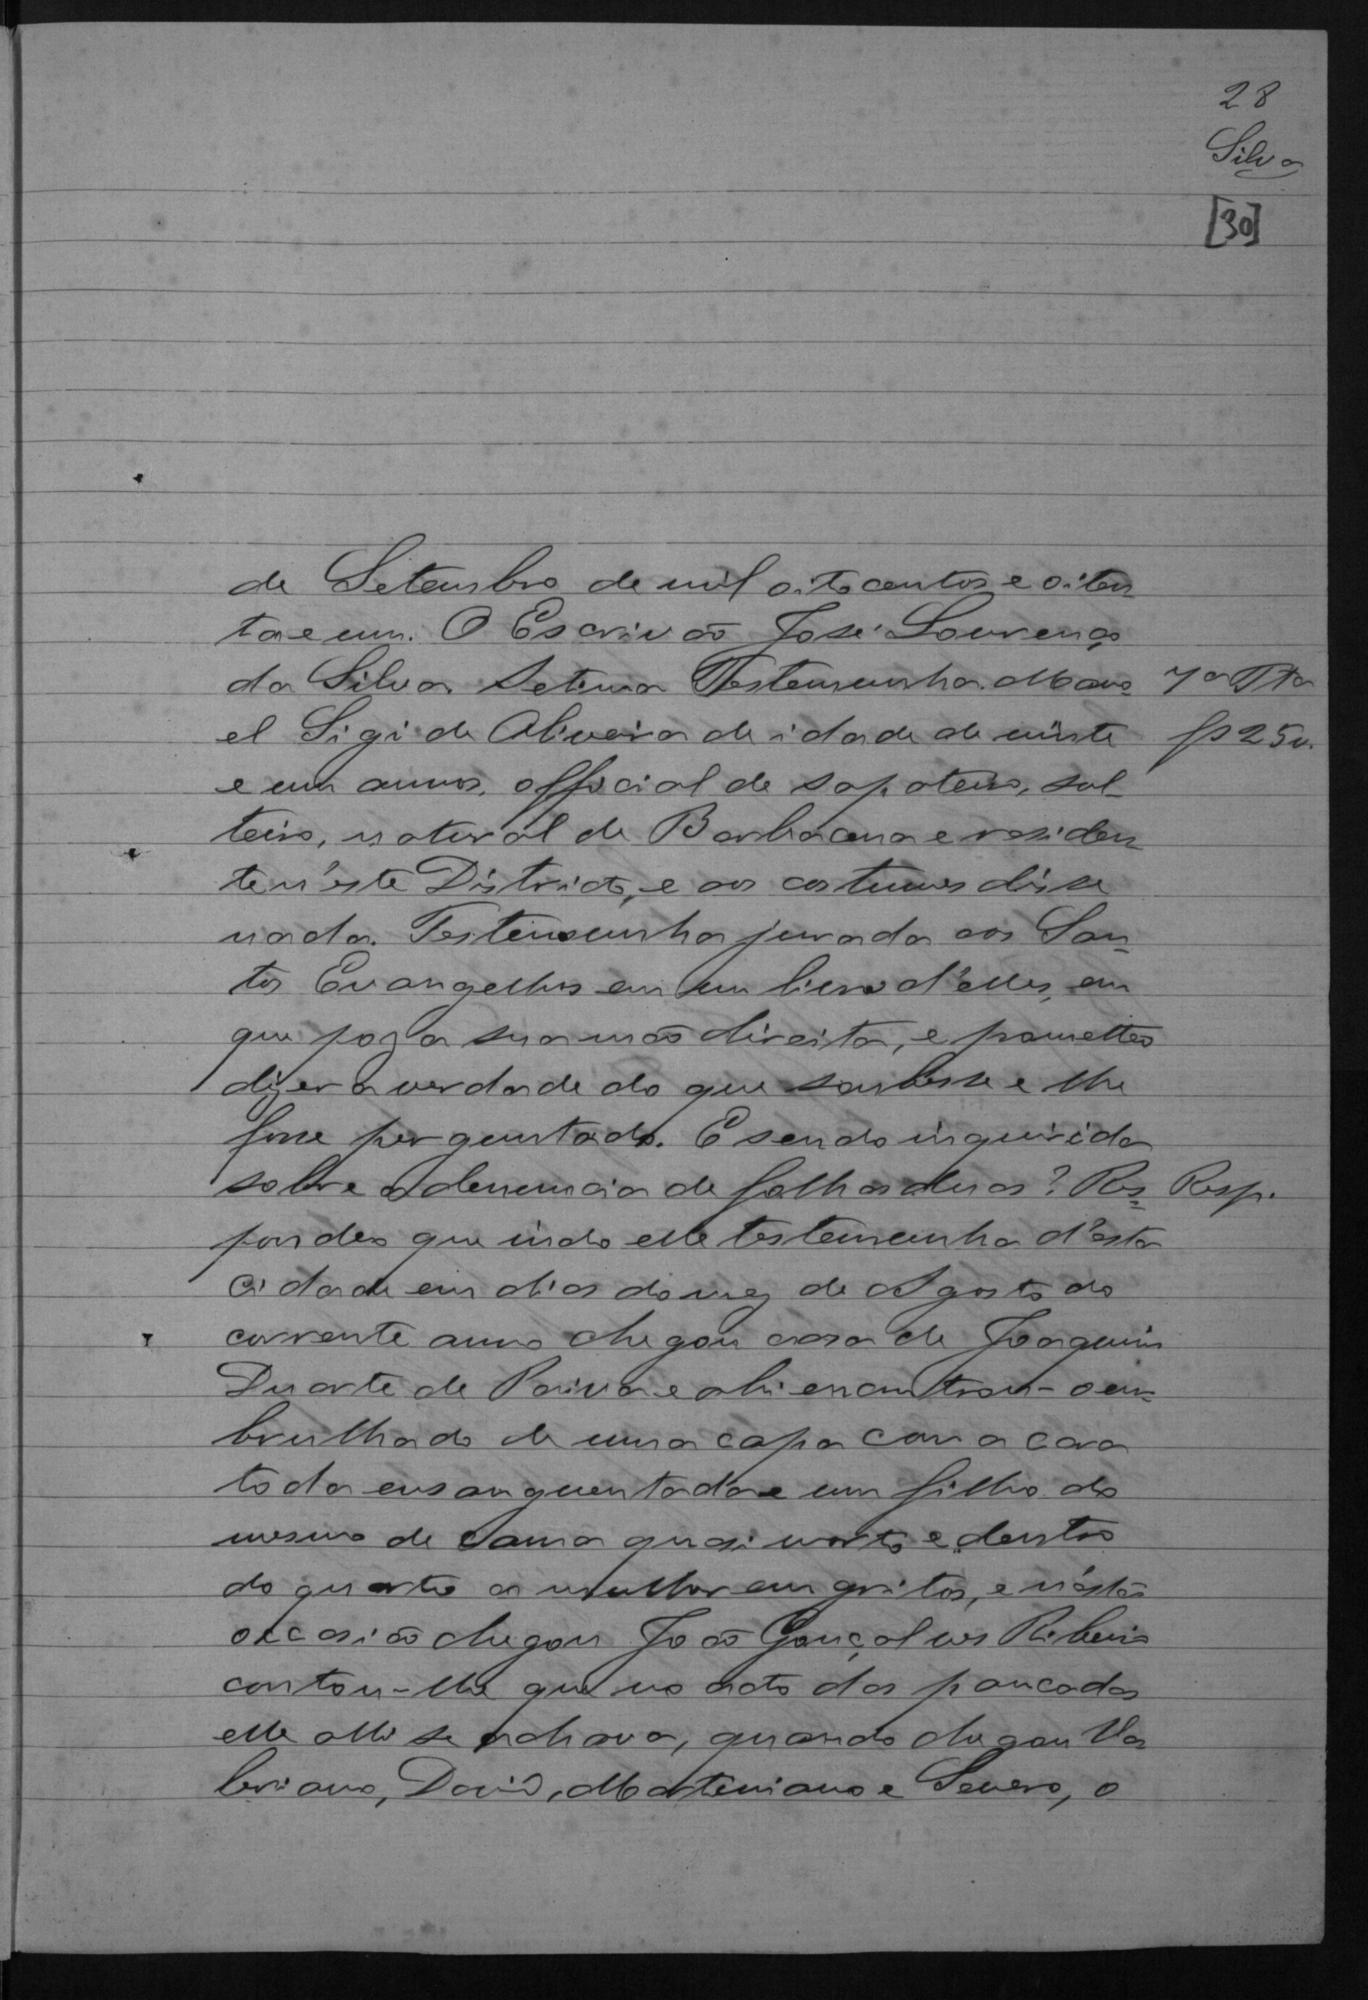 28
Silva
[30]
de Setembro de mil oito centos e oiten
ta e um. O Escrivão José Lourenço
da Silva. Setima Testemunha. Mano 7ª Tta
el Sigi de Oliveira de idade de vinte fs 25v.
e um annos, official de sapateiro, sol
teiro, natural de Barbacena e residen
te n'este Districto, e aos costumes disse
nada. Testemunha jurada aos San
tos Evangelhos em um livro d'elles, em
que poz a sua mão direita, e prometteo
dizer a verdade do que soubesse e lhe
fosse perguntado. E sendo inquirida
sobre a denuncia de folhas duas? Res Resp.
pondeo que indo elle testemunha d'esta
cidade em dias do mez de Agosto do
corrente anno chegou casa de Joaquim
Duarte de Paiva e ahi encontrou-o em
brulhado de uma capa com a cara
toda ensanguentada e um filho do
mesmo de cama quasi morto e dentro
do quarto a mulher em gritos, e n'esta
occasião chegou João Gonçalves Ribeiro
contou-lhe que no acto das pancadas
elle alli se achava, quando chegou Va
leriano, David, Marteniano e Severo, o